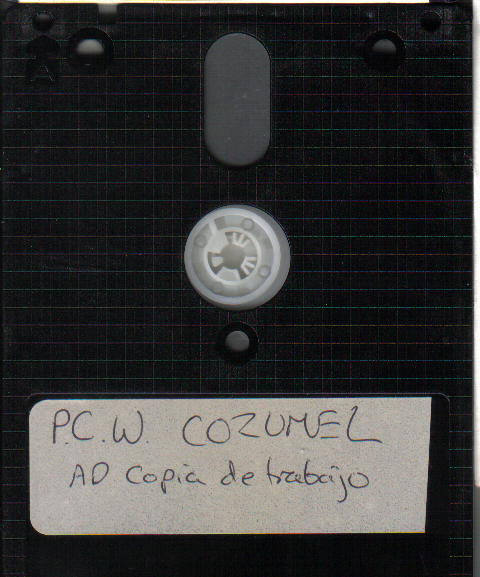 P.C.W. COZUMEL
AD Copia de trabajo